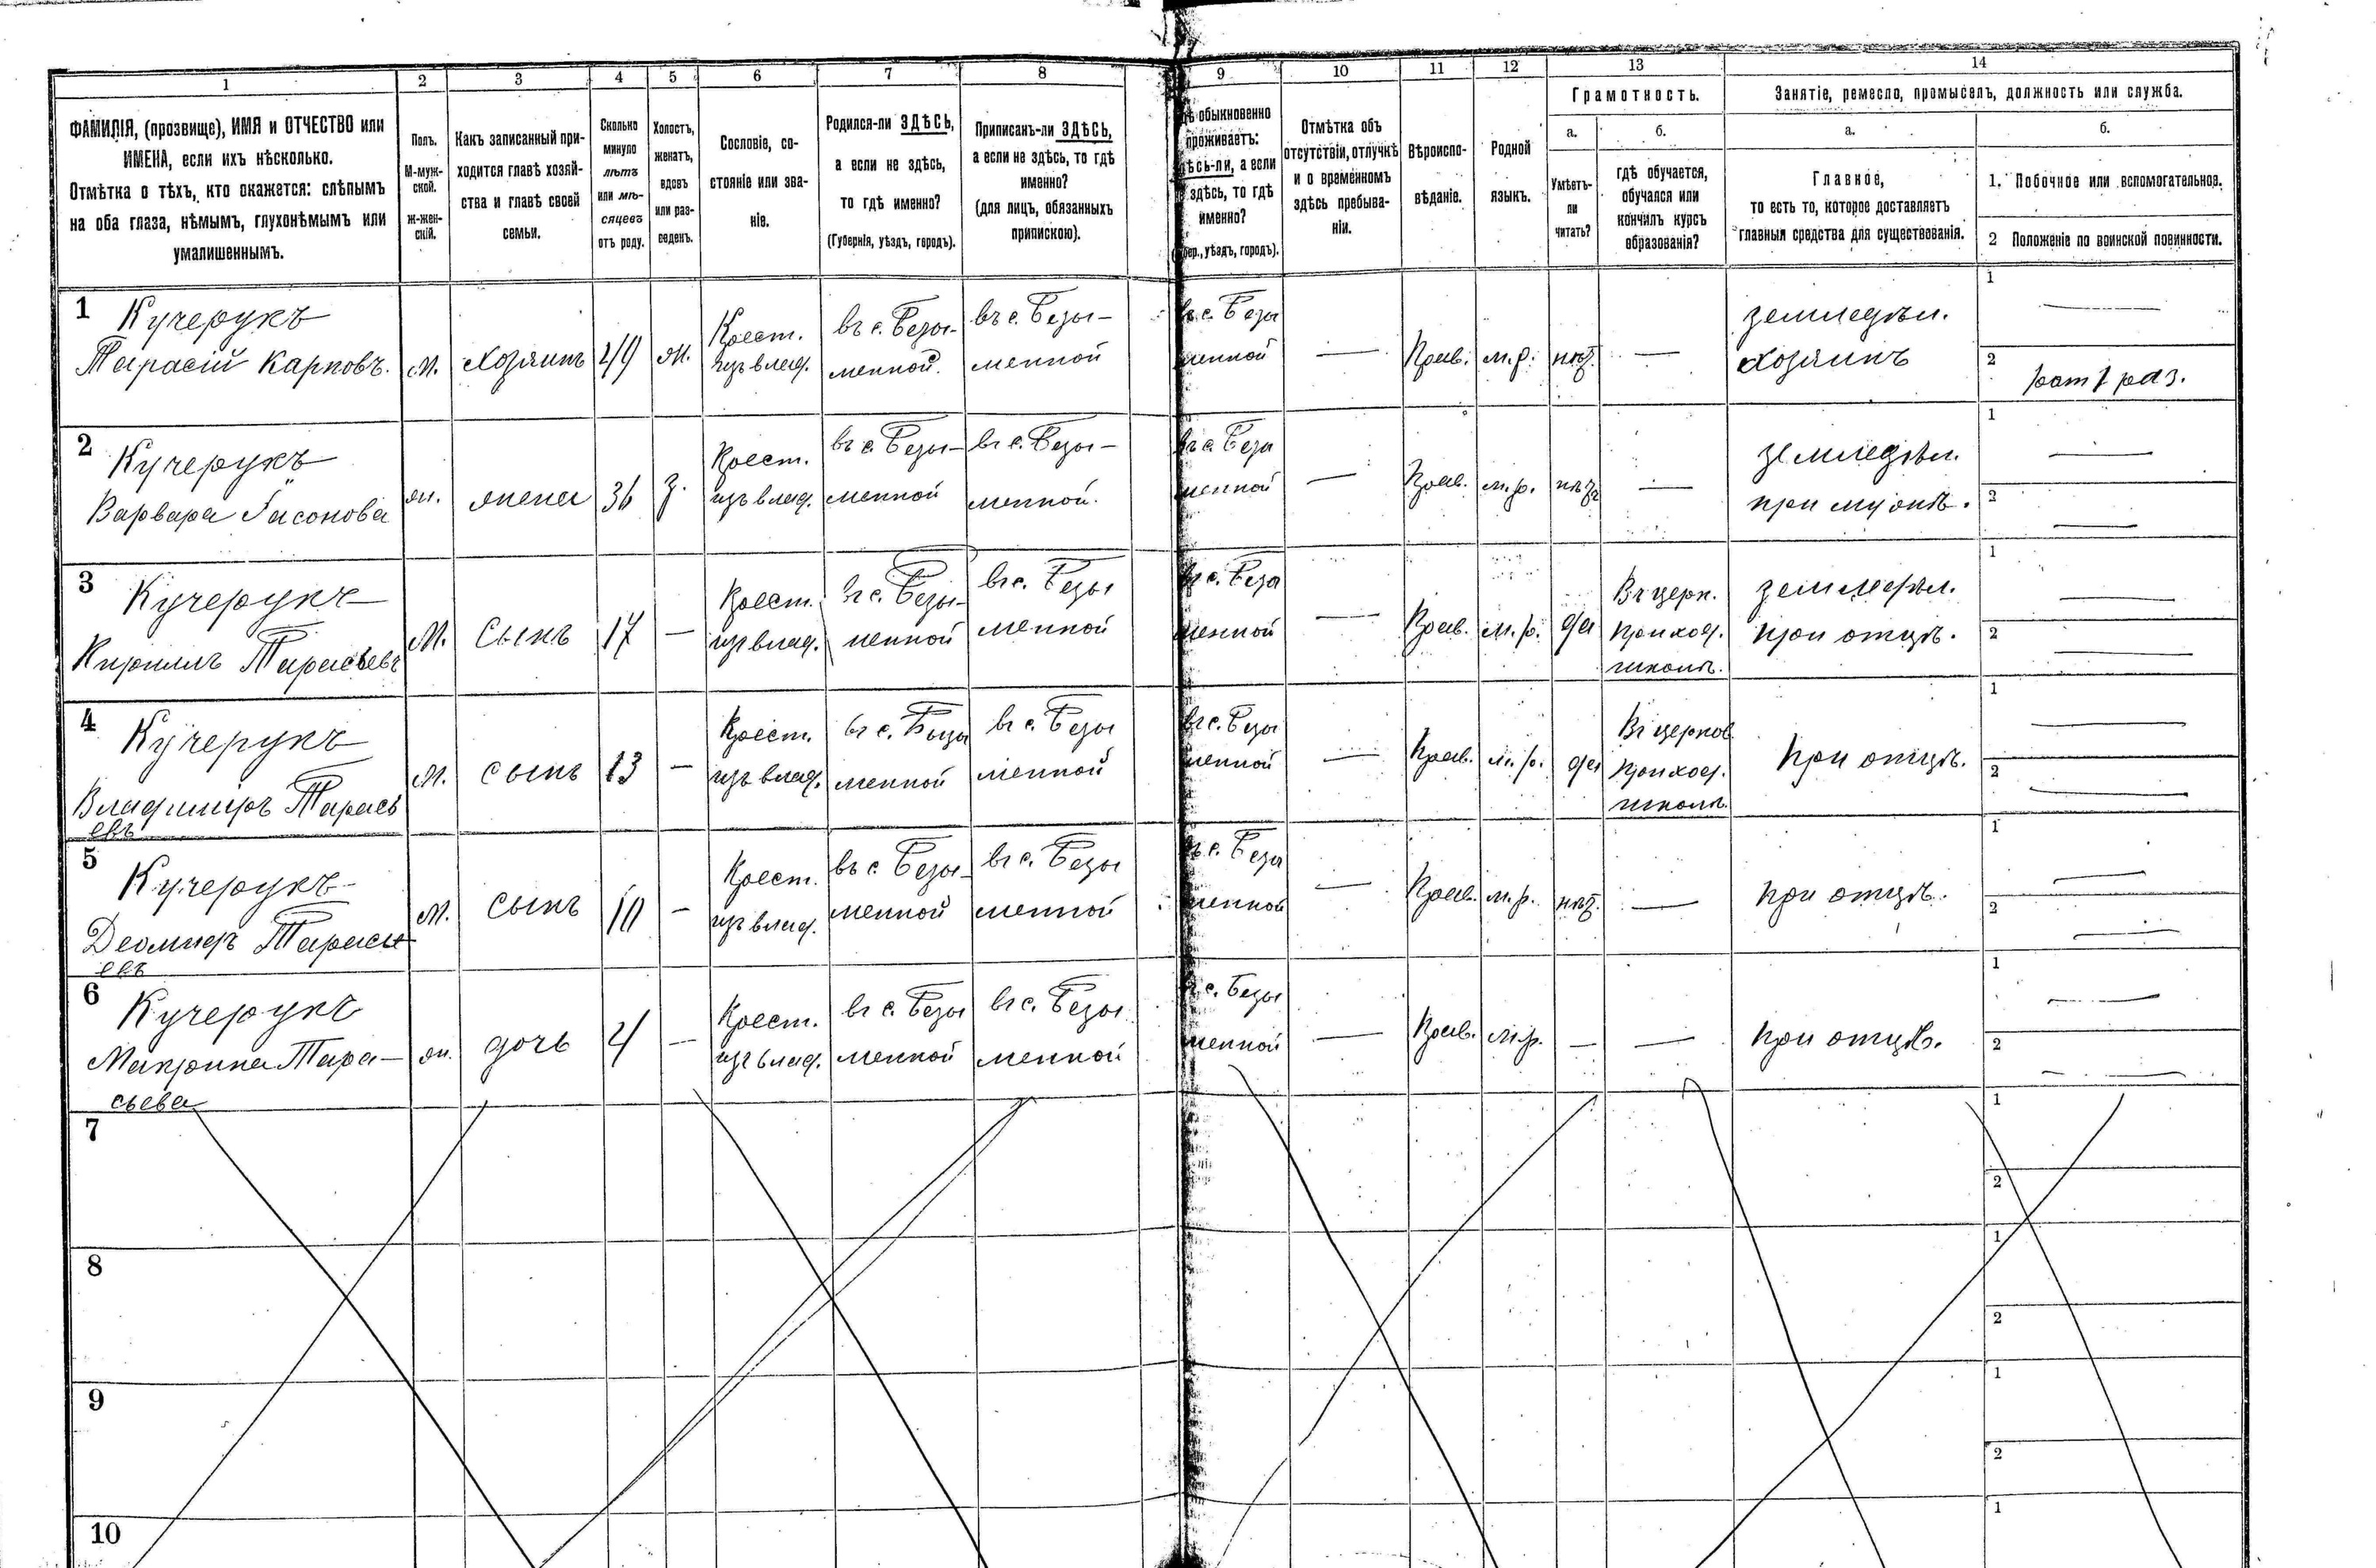 1 2 3 4 5 6 7 8 9 10 11 12 13 14
ФАМИЛІЯ, (прозвище), ИМЯ и ОТЧЕСТВО или
ИМЕНА, если ихъ нѣсколько.
Отмѣтка о тѣхъ, кто окажется: слѣпымъ
на оба глаза, нѣмымъ, глухонѣмымъ или
умалишеннымъ.
Полъ.
М-муж-
ской.
ж-жен-
скій.
Какъ записанный при-
ходится главѣ хозяй-
ства и главѣ своей
семьи.
Сколько
минуло
лѣтъ
или мѣ-
сяцевъ
отъ роду.
Холостъ,
женатъ,
вдовъ
или раз-
веденъ.
Сословіе, со-
стояніе или зва-
ніе.
Родился-ли ЗДѢСЬ,
а если не здѣсь,
то гдѣ именно?
(Губернія, уѣздъ, городъ).
Приписанъ-ли ЗДѢСЬ,
а если не здѣсь, то гдѣ
именно?
(для лицъ, обязанныхъ
припискою).
обыкновенно
проживаетъ:
а если
здѣсь, то гдѣ
именно?
уѣздъ, городъ).
Отмѣтка объ
отсутствіи, отлучкѣ
и о временномъ
здѣсь пребыва-
ніи.
Вѣроиспо-
вѣданіе.
Родной
языкъ.
Грамотность.
а.
Умѣетъ-
ли
читать?
б.
гдѣ обучается,
обучался или
кончилъ курсъ
образованія?
Занятіе, ремесло, промыселъ, должность или служба.
а.
Главное,
то есть то, которое доставляетъ
главныя средства для существованія.
б.
1. Побочное или вспомогательное.
2 Положеніе по воинской повинности.
1 Кучерукъ
Тарасій Карповъ.
м.
хозяинъ
49
ж.
Крест.
изъ влад.
въ с. Безы-
менной.
въ с. Безы-
менной
въ с. Безы
менной
—
Прав.
м.р.
нѣт.
—
земледѣл.
хозяинъ
1 —
2 рат 1 раз.
2 Кучерукъ
Варвара
ж.
жена
36
з.
Крест.
изъ влад.
въ с. Безы-
менной
въ с. Безы-
менной.
въ с. Безы
менной
—
Прав.
м.р.
нѣт
—
земледѣл.
при мужѣ.
1 —
2 —
3 Кучерукъ
Кирилъ Тарасьевъ
м.
сынъ
17
—
Крест.
изъ влад.
въ с. Безы-
менной
въ с. Безы
менной
въ с. Безы
менной
—
Прав.
м.р.
да
Въ церк.
приход.
школѣ.
земледѣл.
при отцѣ.
1 —
2 —
4 Кучерукъ
Владиміръ Тарась
евъ
м.
сынъ
13
—
Крест.
изъ влад.
въ с. Безы
менной
въ с. Безы
менной
въ с. Безы
менной
—
Прав.
м.р.
да
Въ церков
приход.
школѣ.
при отцѣ.
1 —
2 —
5 Кучерукъ
Тарась
евъ
м.
сынъ
10
—
Крест.
изъ влад.
въ с. Безы-
менной
въ с. Безы
менной
въ с. Безы
менной
—
Прав.
м.р.
нѣт.
—
при отцѣ.
1 —
2 —
6 Кучерукъ
Макрина Тара-
сьева
ж.
дочь
4
—
Крест.
изъ влад.
въ с. Безы
менной
въ с. Безы
менной
въ с. Безы
менной
—
Прав.
м.р.
—
—
при отцѣ.
1 —
2 —
7
1
2
8
1
2
9
1
2
10
1